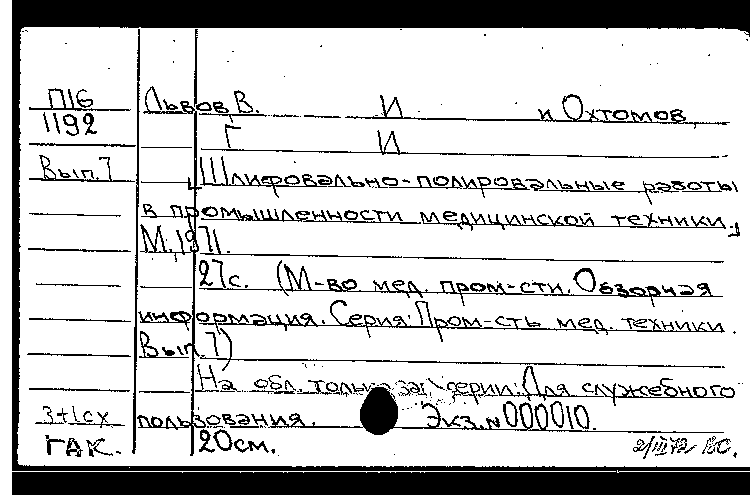 П16 Львов, В. И и Охтомов,
1192 Г И
Вып.7 [Шлифовально-полировальные работы
в промышленности медицинской техники.]
М., 1971.
27с. (М-во мед. пром-сти. Обзорная
информация. Серия: Пром-сть мед. техники.
Вып.7)
На обл. только заг. серии. Для служебного
3+1сх пользования. Экз. № 000010.
ГАК. 20см. 2/III 72 ВС.